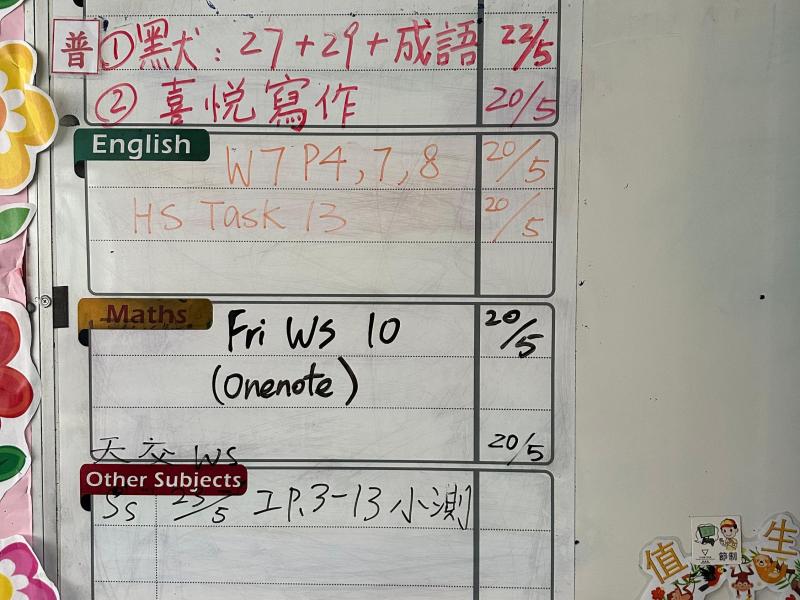 普 ①默:27+29+成語 22/5
②喜悅寫作 20/5
English
W7 P4,7,8 20/5
HS Task 13 20/5
Maths
Fri WS 10 20/5
(Onenote)
天交 WS 20/5
Other Subjects
Ss 23/5 工P.3-13 小測
節制
值 生